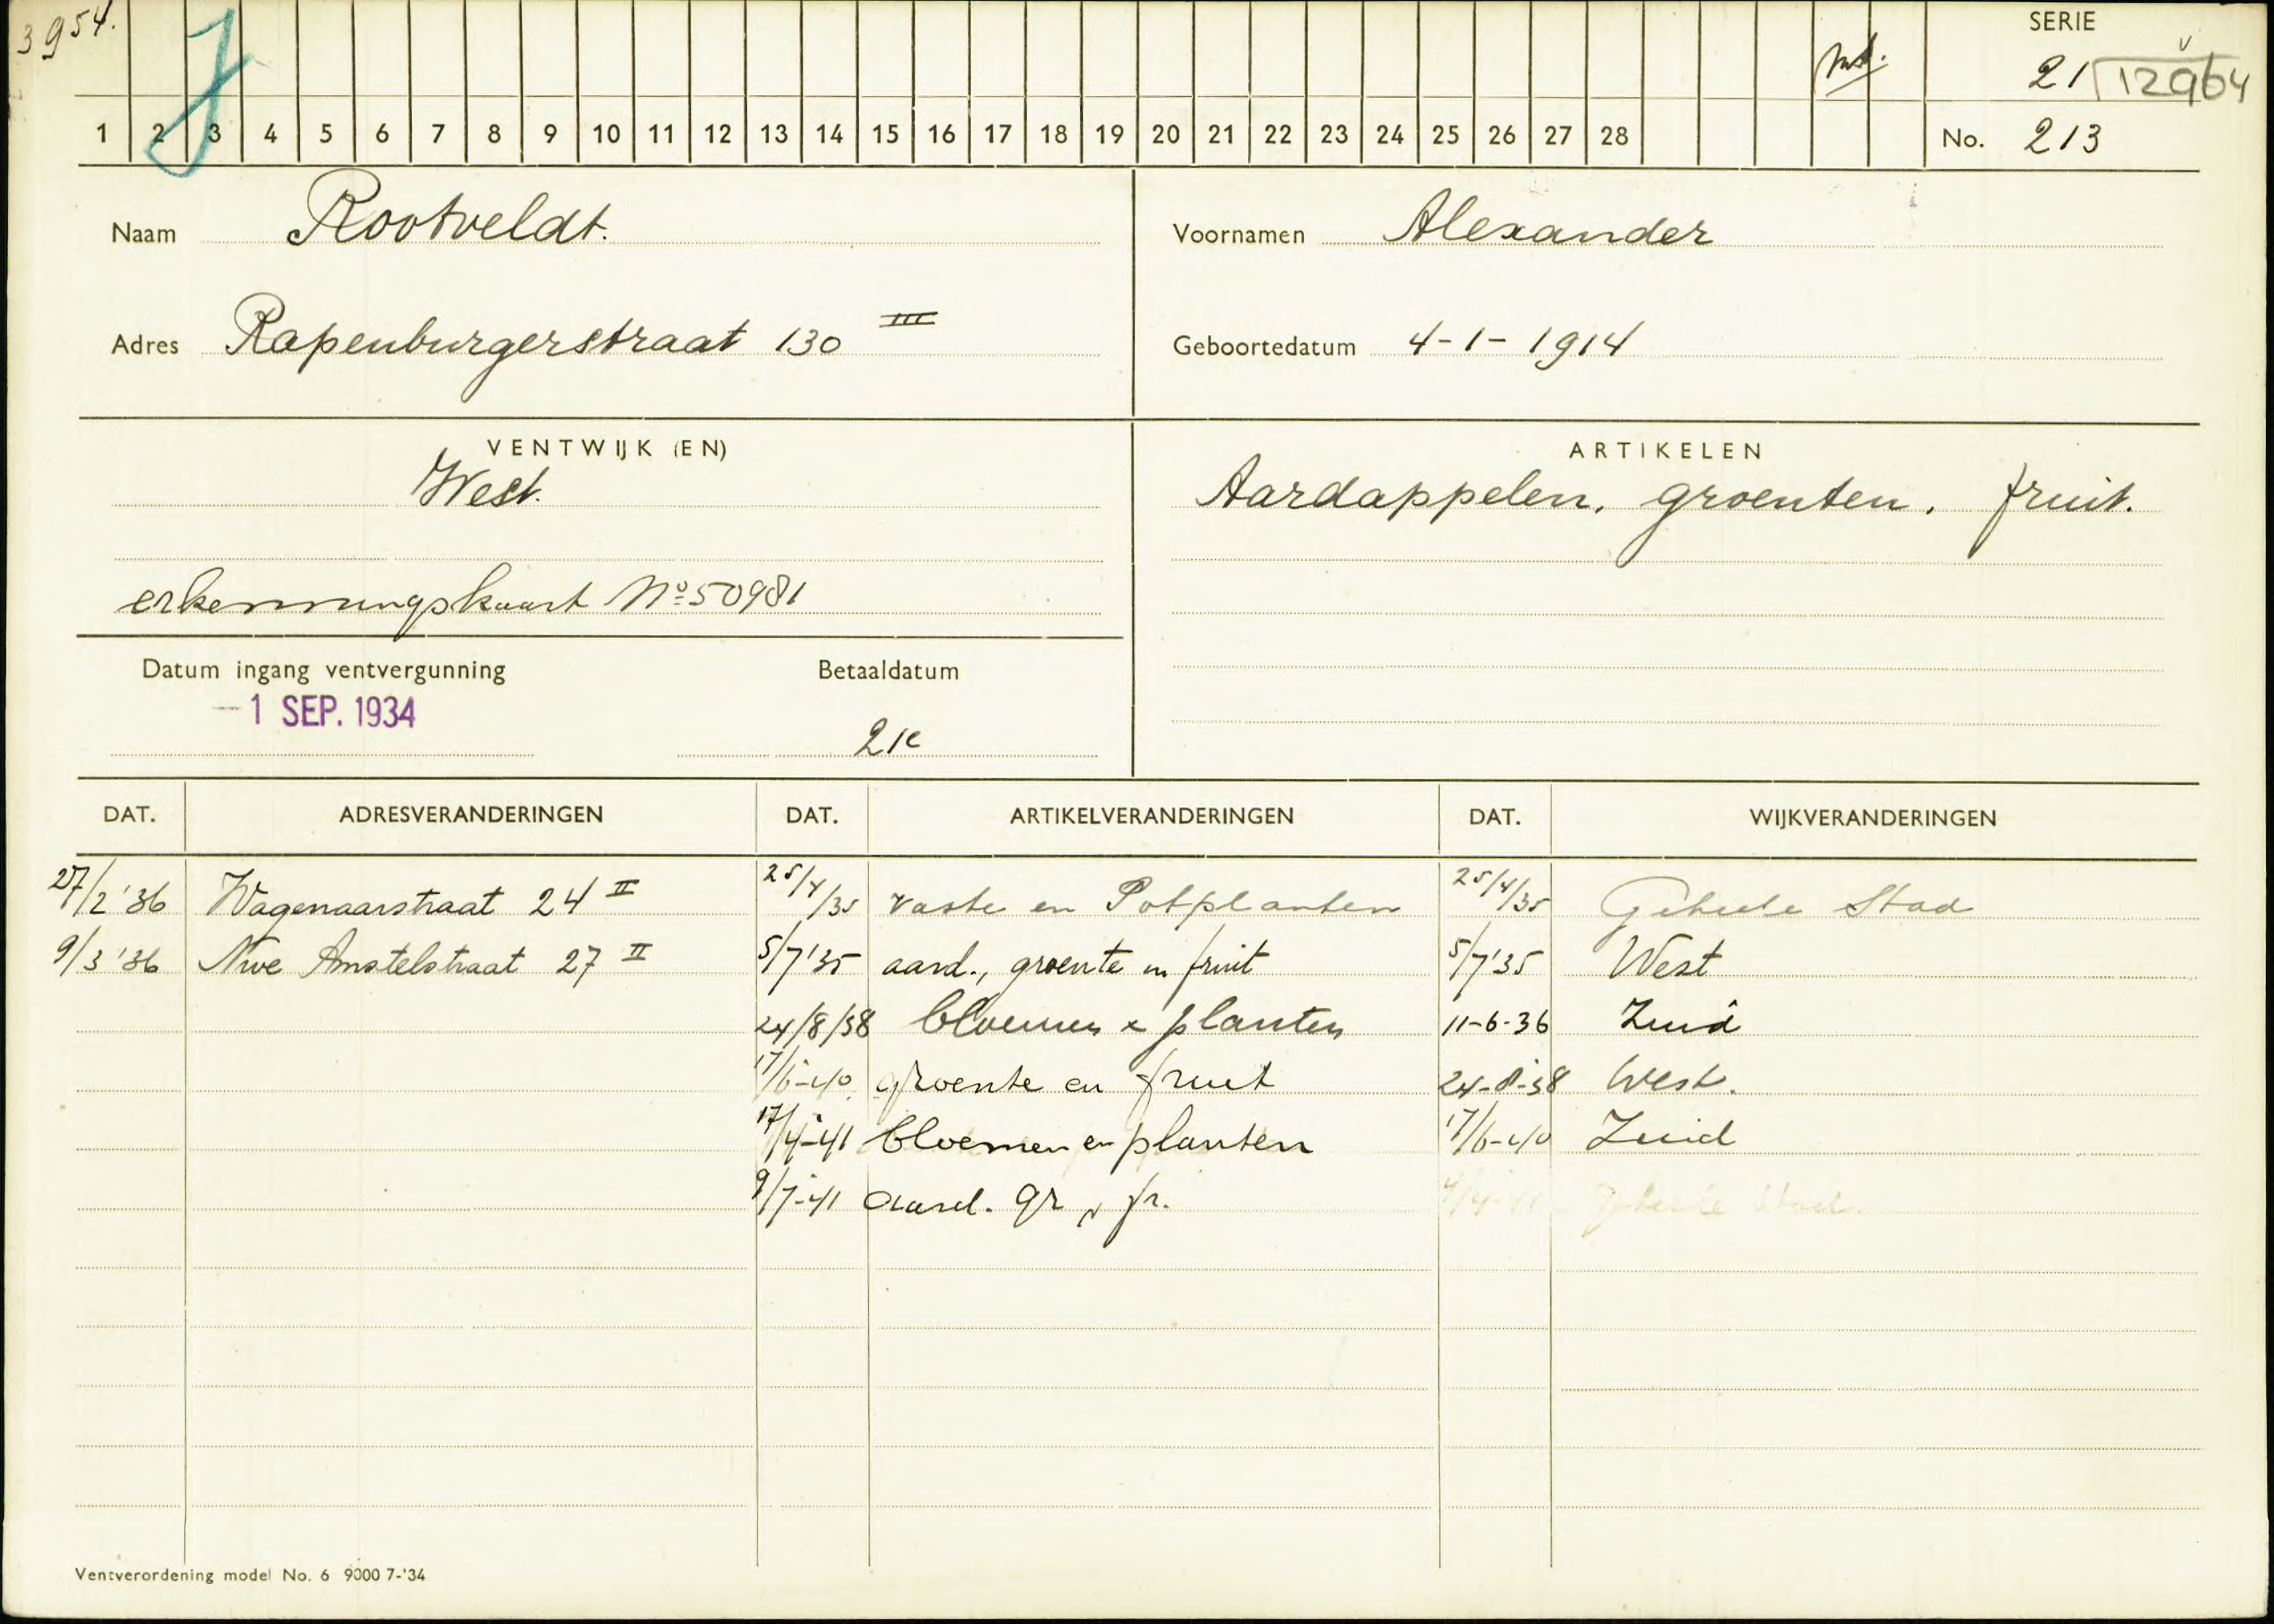 3954.
J
SERIE
21 12964
1 2 3 4 5 6 7 8 9 10 11 12 13 14 15 16 17 18 19 20 21 22 23 24 25 26 27 28
No. 213
Naam Rootveldt.
Voornamen Alexander
Adres Rapenburgerstraat 130 III
Geboortedatum 4-1-1914
VENTWIJK (EN)
West.
erkenningskaart No 50981
ARTIKELEN
Aardappelen, groenten, fruit.
Datum ingang ventvergunning
-1 SEP. 1934
Betaaldatum
21e
DAT. ADRESVERANDERINGEN DAT. ARTIKELVERANDERINGEN DAT. WIJKVERANDERINGEN
27/2 '36 Wagenaarstraat 24 II 25/4/35 vaste en Potplanten 25/4/35 Geheele Stad
9/3 '36 Nwe Amstelstraat 27 II 5/7 '35 aard., groente en fruit 5/7 '35 West
24/8/38 bloemen & planten 11-6-36 Zuid
17/6-40 groente en fruit 24-8-38 West.
17/4-41 bloemen en planten 17/6-40 Zuid
9/7-41 aard. gr n fr. Geheele Stad
Ventverordening model No. 6 9000 7-'34